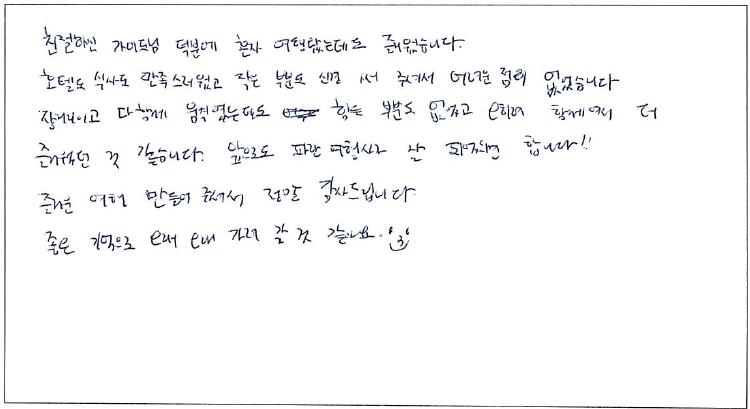 친절하신 가이드님 덕분에 혼자 여행왔는데도 즐거웠습니다.
호텔도 식사도 만족스러웠고 작은 부분도 신경 써 주셔서 어려운 점이 없었습니다
다함께 움직였는데도 힘든 부분도 없었고 오히려 함께여서 더
즐거웠던 것 같습니다. 앞으로도 파란 여행사가 잘 되었으면 합니다!!
즐거운 여행 만들어 주셔서 정말 감사드립니다.
좋은 기억으로 오래 오래 가져 갈 것 같네요.